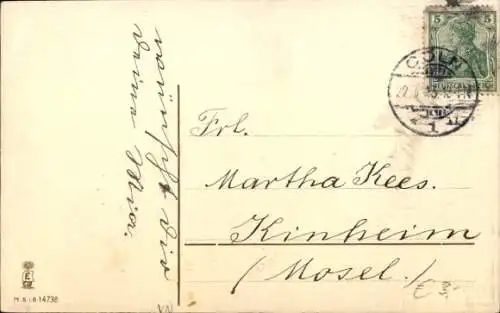 wünscht Dir
Deine Mia.
5
DEUTSCHES REICH
CÖLN
1
Frl.
Martha Kees.
Kinheim
(Mosel.)
M.S.i.B. 14738
€ 3.-